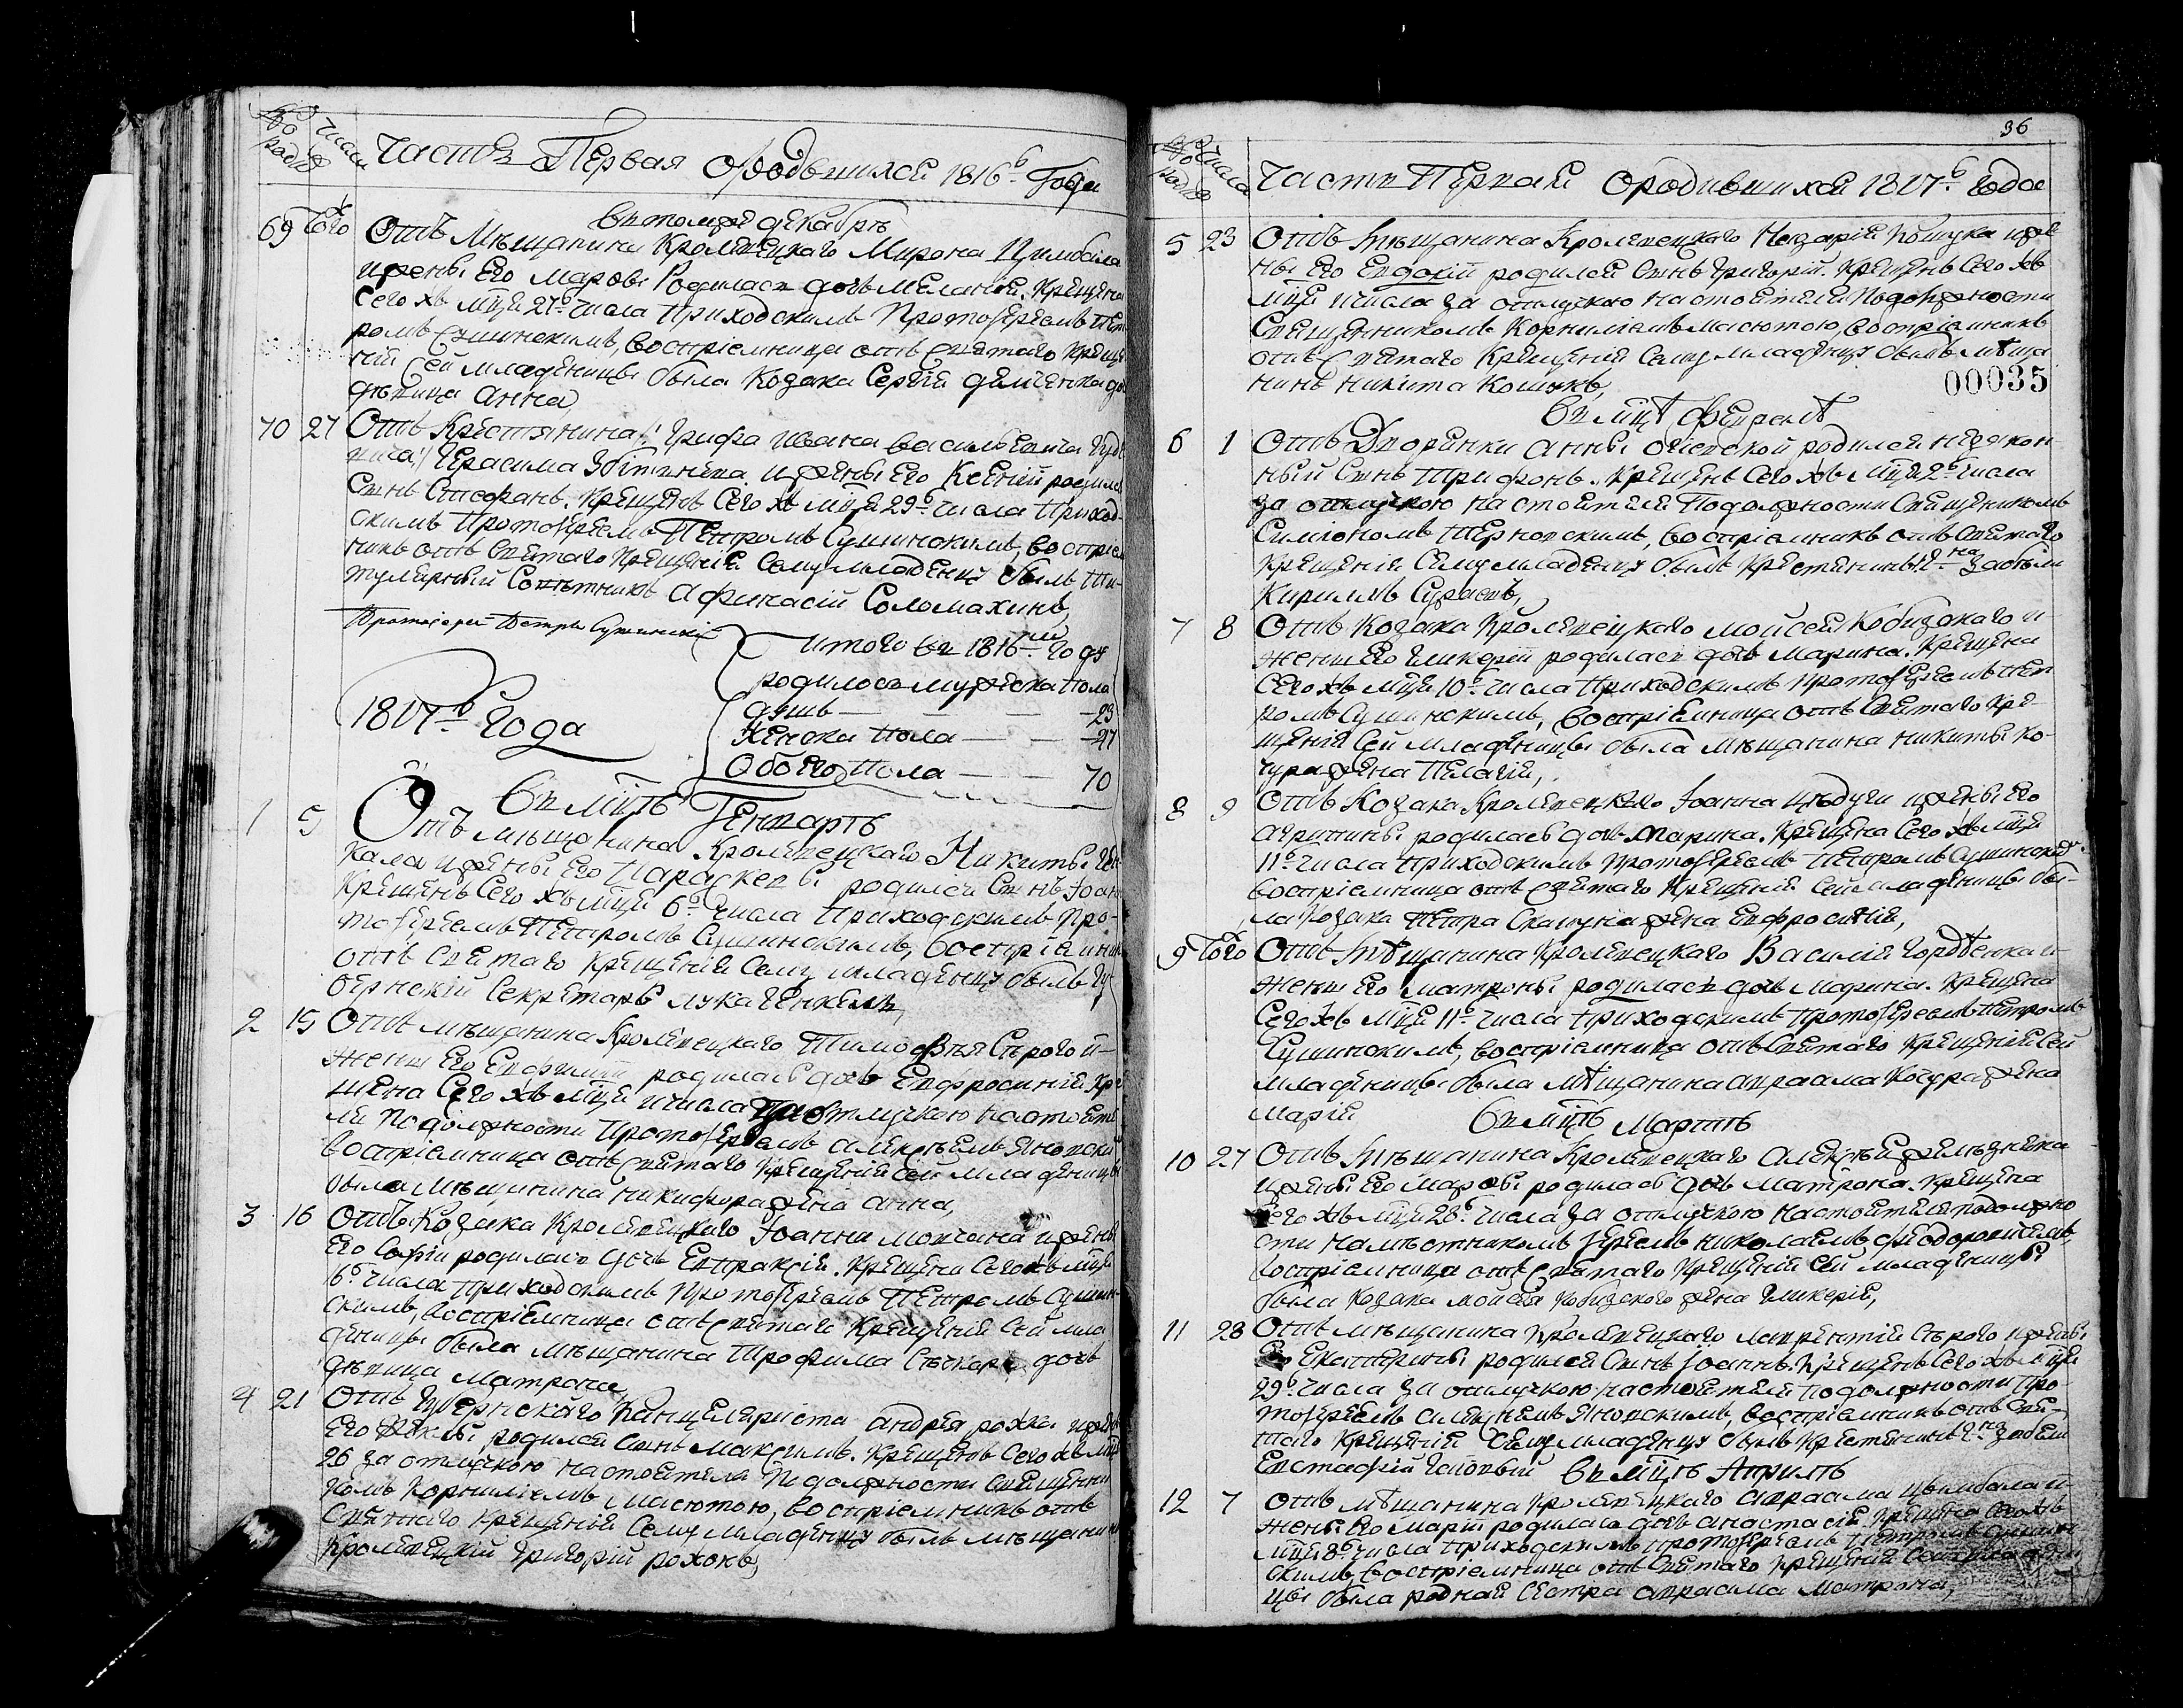 Часть Первая о родившихся 1816го Года
В томже декабрѣ
69 Того Отъ Мѣщанина Кролевецкаго Мирона Цимбала
и жены Его Марѳы Родилась дочь Меланія. Крещена
Сего жъ мца 27го числа Приходскимъ Протоіереемъ Пет
ромъ Сушинскимъ, восприемница отъ святаго Креще
нія Сей младеницы была Козака Сергія дочь
дѣвица Анна,
70 27 Отъ Крестянина Графа Ивана Васильевича Гудо
вича Герасима и жены Его Ксеніи родился
Сынъ Стефанъ. Крещенъ Сего жъ мца 29го числа Приход
скимъ Протоіереемъ Петромъ Сушинскимъ, восприем
никъ отъ святаго Крещенія Сему младенцу былъ Ти
тулярный Совѣтникъ Афанасій Соломахинъ,
Протоіерей Петръ Сушинскій
Итого въ 1816м году
родилось мужеска пола
душъ — 23
Женска пола — 47
Обоего пола — 70
1817го Года
В мцѣ Генварѣ
1 5 Отъ мѣщанина Кролевецкаго Никиты
кала и жены Его Параскевы родился Сынъ Іоаннъ
Крещенъ Сего жъ мца 6го числа Приходскимъ Про
тоіереемъ Петромъ Сушинскимъ, восприемникъ
отъ святаго Крещенія Сему младенцу былъ Гу
бернскій Секретарь Лука Генкель,
2 15 Отъ мѣщанина Кролевецкаго Тимофѣя Сѣрого и
жены Его Евфиміи родилась дочь Евфросинія. Кре
щена Сего жъ мца и числа за отлучкою настояте
ля по должности Протоіереемъ Алексѣемъ Яновски
восприемница отъ святаго Крещенія Сей младеницы
была мѣщанина Никифора жена Анна,
3 16 Отъ Козака Кролевецкаго Іоанна Мовчана и жены
Его Софіи родилась дочь Евпраксія. Крещена Сего жъ мца
6го числа Приходскимъ Протоіереемъ Петромъ Сушин
скимъ, восприемница отъ святаго Крещенія Сей мла
деницы была мѣщанина Трофима дочь
дѣвица Матрона
4 21 Отъ Губернскаго Канцеляриста Андрея Рохка и жены
Его Феклы родился Сынъ Максимъ. Крещенъ Сего жъ мца
26 за отлучкою настоятеля по должности священни
комъ Корниліемъ Масютою, восприемникъ отъ
святаго Крещенія Сему младенцу былъ мѣщанинъ
Кролевецкій Григорій Рохонъ,
36
Часть Первая о родившихся 1817го года
5 23 Отъ мѣщанина Кролевецкаго Назарія Кошука и же
ны Его Евдокіи родился Сынъ Григорій. Крещенъ Сего жъ
мца и числа за отлучкою настоятеля по должности
Священникомъ Корниліемъ Масютою, восприемникъ
отъ святаго Крещенія Сему младенцу былъ мѣща
нинъ Никита Кошукъ,
00035
В мцѣ Февралѣ
6 1 Отъ Дворянки Анны родился незакон
ный Сынъ Трифонъ. Крещенъ Сего жъ мца 2го числа
за отлучкою настоятеля по должности Священикомъ
Симіономъ Терновскимъ, восприемникъ отъ святаго
Крещенія Сему младенцу былъ Крестянинъ
Кирилъ
7 8 Отъ Козака Кролевецкаго Моисея Кобизкаго и
жены Его Гликеріи родилась дочь Марина. Крещена
Сего жъ мца 10го числа Приходскимъ Протоіереемъ Пет
ромъ Сушинскимъ, восприемница отъ святаго Кре
щенія Сей младеницы была мѣщанина Никиты Ко
чура жена Пелагія,
8 9 Отъ Козака Кролевецкаго Іоанна Цѣдучи и жены Его
Агрипины родилась дочь Марина. Крещена Сего жъ мца
11го числа Приходскимъ Протоіереемъ Петромъ Сушинскимъ
восприемница отъ святаго Крещенія Сей младеницы бы
ла Козака Петра жена Евфросинія,
9 Того Отъ мѣщанина Кролевецкаго Василія Гордѣенка и
жены Его Матроны родилась дочь Марина. Крещена
Сего жъ мца 11го числа Приходскимъ Протоіереемъ Петромъ
Сушинскимъ, восприемница отъ святаго Крещенія Сей
младеницы была мѣщанина Авраама Кочура жена
Марія
В мцѣ Мартѣ
10 27 Отъ мѣщанина Кролевецкаго Алексѣя
и жены Его Марѳы родилась дочь Матрона. Крещена
Сего жъ мца 28го числа за отлучкою настоятеля по должно
сти намѣстникомъ Іереемъ Николаемъ
восприемница отъ святаго Крещенія Сей младеницы
была Козака Моисея Кобизского жена Гликерія,
11 28 Отъ мѣщанина Кролевецкаго Лаврентія Сѣрого и жены
Его Екатерины родился Сынъ Іоаннъ. Крещенъ Сего жъ мца
29го числа за отлучкою настоятеля по должности Про
тоіереемъ Алексѣемъ Яновскимъ, восприемникъ отъ свя
таго Крещенія Сему младенцу былъ Крестянинъ
Евстафій
В мцѣ Априлѣ
12 7 Отъ мѣщанина Кролевецкаго Авраама Цымбала и
жены Его Маріи родилась дочь Анастасія. Крещена Сего жъ
мца 8го числа Приходскимъ Протоіереемъ Петромъ Сушин
скимъ, восприемница отъ святаго Крещенія Сей младени
цы была родная Сестра Авраама Матрона,